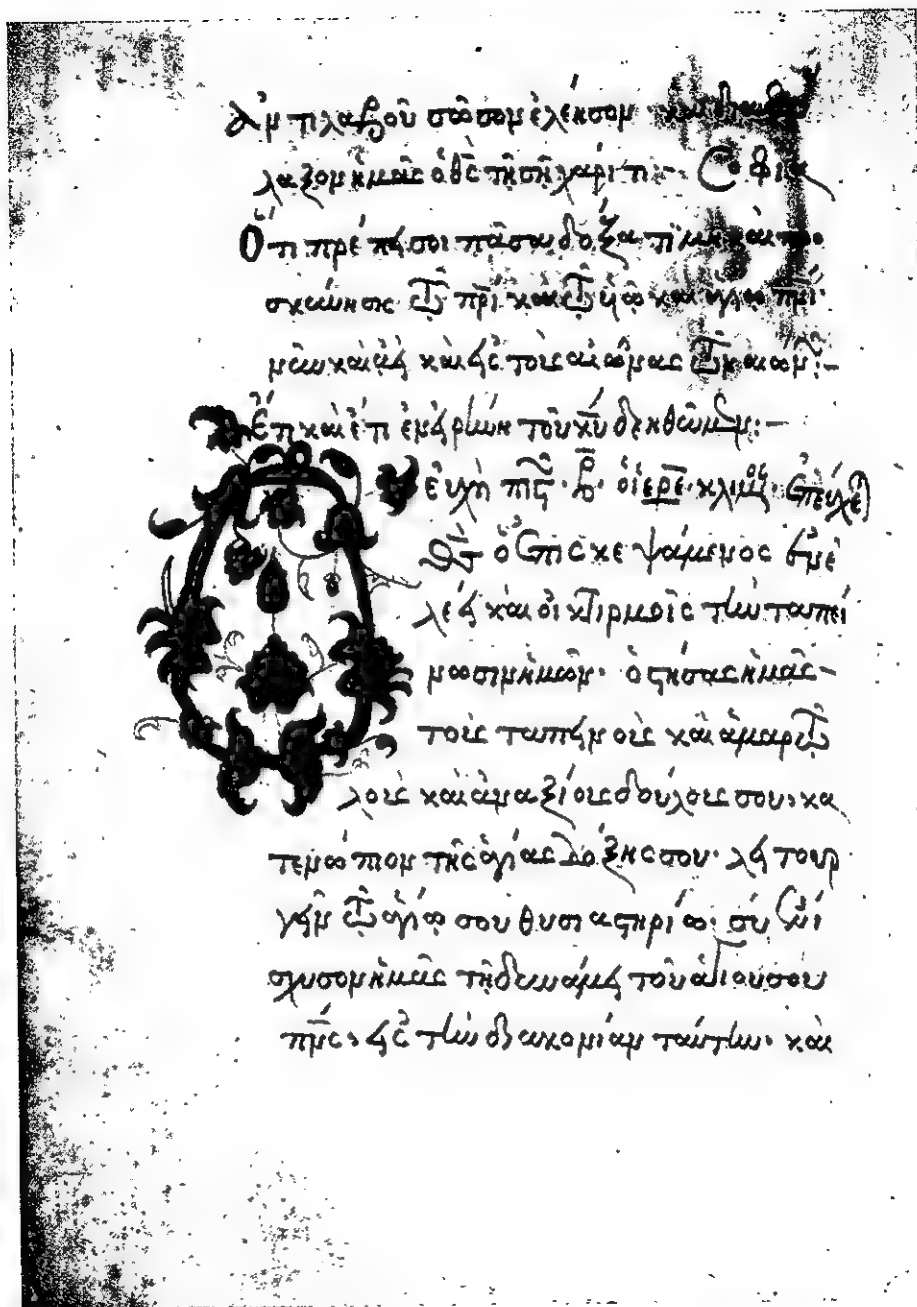 Ἀντιλαβοῦ σῶσον ἐλέησον καὶ διαφύ
λαξον ἡμᾶς ὁ θς τῆ σῆ χάριτι· Σοφία
Ὅτι πρέπει σοι πᾶσα δόξα τιμὴ καὶ προ
σκύνησις τῶ πρὶ καὶ τῶ υἱῶ καὶ ἁγίω πνι·
νῦν καὶ ἀεὶ καὶ εἰς τοὺς αἰῶνας τῶν αἰών:–
Ἔτι καὶ ἔτι ἐν εἰρήνη τοῦ κυ δεηθῶμεν:–
εὐχὴ πιστ· β· ὁ ἱερε· κλιν· ἐπεύχετ
Ὁ θς ὁ ἐπισκεψάμενος ἐν ἐλέ
ει καὶ οἰκτιρμοῖς τὴν ταπεί
νωσιν ἡμῶν· ὁ στήσας ἡμᾶς–
τοὺς ταπεινοὺς καὶ ἁμαρτω
λοὺς καὶ ἀναξίους δούλους σου· κα
τενώπιον τῆς ἁγίας δόξης σου· λειτουρ
γεῖν τῶ ἁγίω σου θυσιαστηρίω· σὺ ἐνί
σχυσον ἡμᾶς τῆ δυνάμει τοῦ ἁγίου σου
πνς· εἰς τὴν διακονίαν ταύτην· καὶ